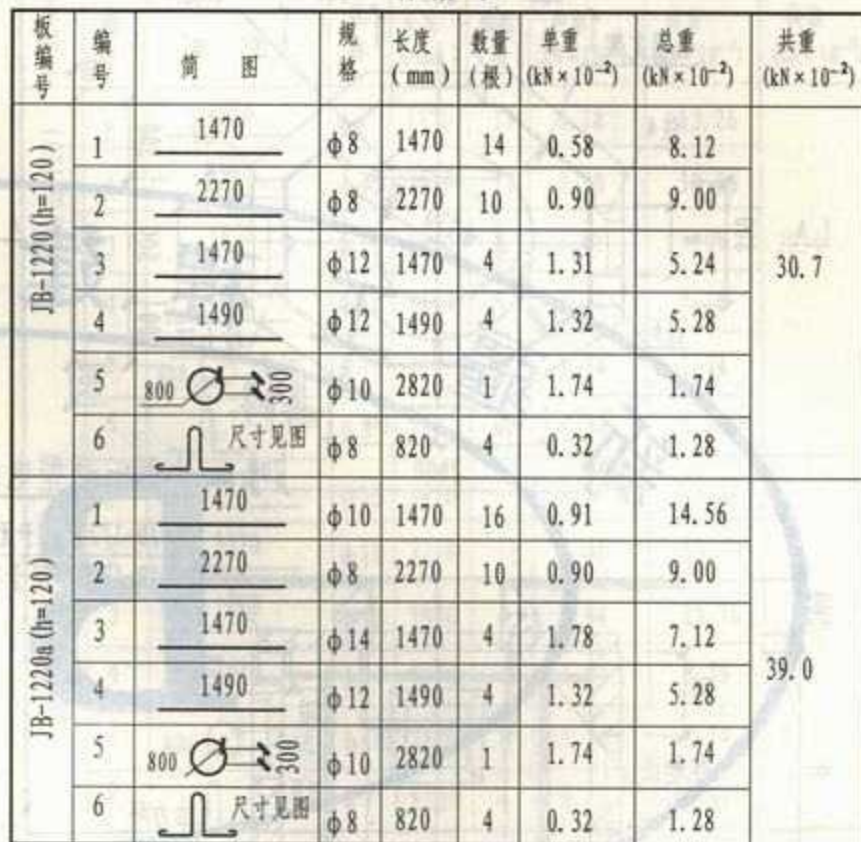 板编号 编号 简 图 规格 长度(mm) 数量(根) 单重(kN×10⁻²) 总重(kN×10⁻²) 共重(kN×10⁻²)
JB-1220(h=120)
1 1470 φ8 1470 14 0.58 8.12
2 2270 φ8 2270 10 0.90 9.00
3 1470 φ12 1470 4 1.31 5.24
30.7
4 1490 φ12 1490 4 1.32 5.28
5 800 300 φ10 2820 1 1.74 1.74
6 尺寸见图 φ8 820 4 0.32 1.28
JB-1220a(h=120)
1 1470 φ10 1470 16 0.91 14.56
2 2270 φ8 2270 10 0.90 9.00
3 1470 φ14 1470 4 1.78 7.12
39.0
4 1490 φ12 1490 4 1.32 5.28
5 800 300 φ10 2820 1 1.74 1.74
6 尺寸见图 φ8 820 4 0.32 1.28